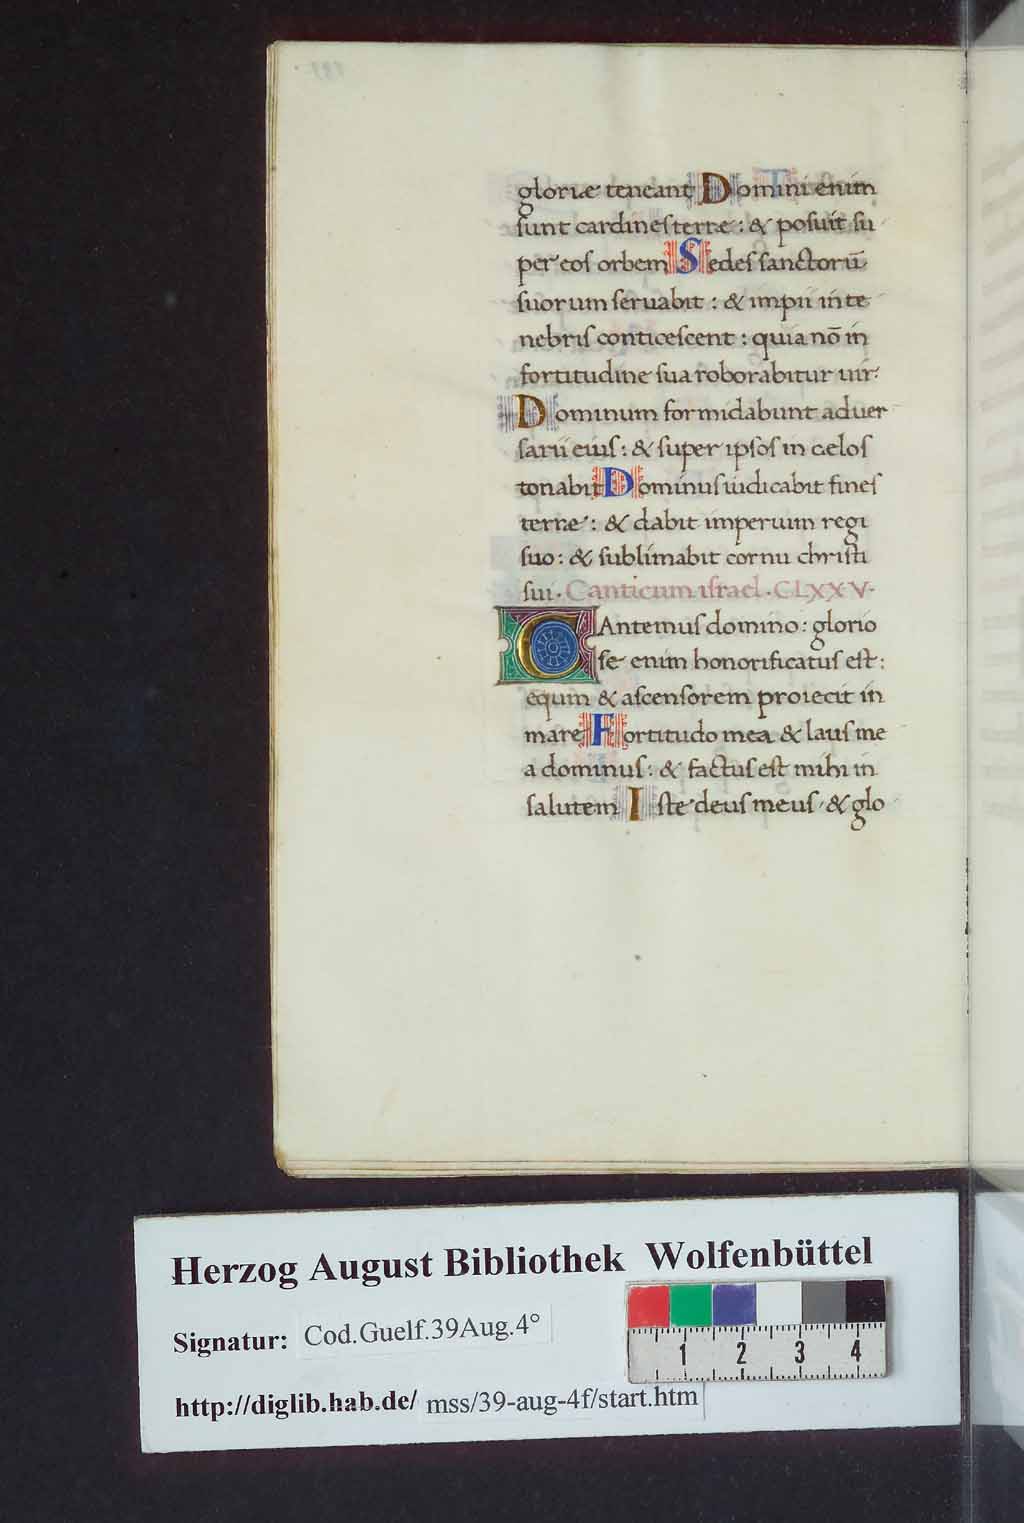 gloriæ teneant Domini enim
sunt cardines terræ : & posuit su
per eos orbem Sedes sanctorū
suorum seruabit : & impii in te
nebris conticescent : quia nō in
fortitudine sua roborabitur uir.
Dominum formidabunt aduer
sarii eius : & super ipsos in cęlos
tonabit Dominus iudicabit fines
terræ : & dabit imperium regi
suo : & sublimabit cornu christi
sui . Canticum israel . CLXXV .
CAntemus domino : glorio
se enim honorificatus est :
equm & ascensorem proiecit in
mare Fortitudo mea & laus me
a dominus : & factus est mihi in
salutem Iste deus meus . & glo
Herzog August Bibliothek Wolfenbüttel
Signatur: Cod.Guelf.39Aug.4°
http://diglib.hab.de/ mss/39-aug-4f/start.htm
1 2 3 4